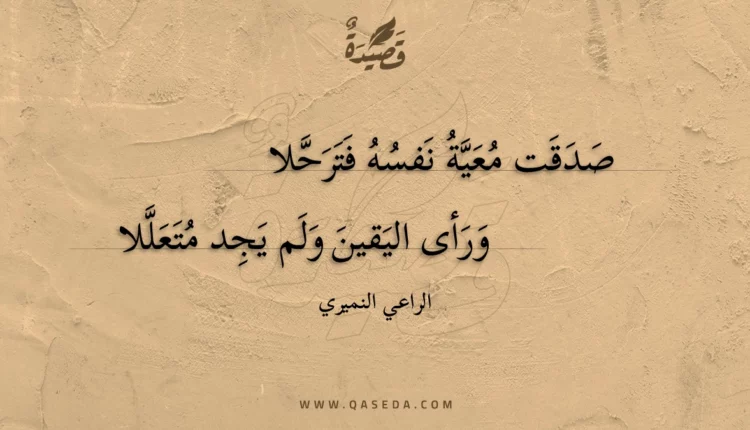 قَصِيْدَةٌ
صَدَقَت مُعَيَّةُ نَفسُهُ فَتَرَحَّلا
وَرَأى اليَقينَ وَلَم يَجِد مُتَعَلَّلا
الراعي النميري
WWW.QASEDA.COM